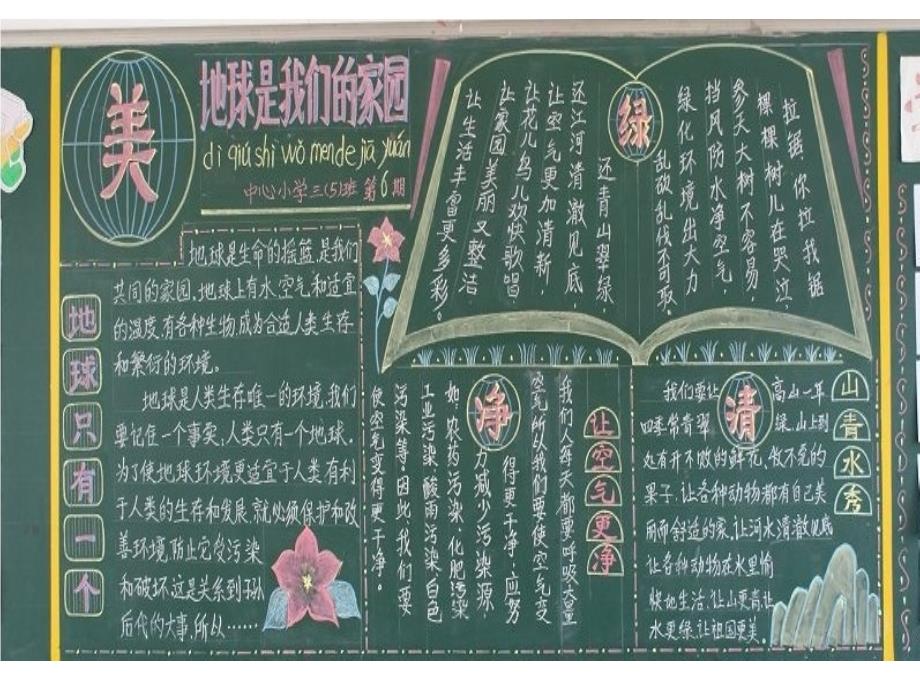 美
地球是我们的家园
dì qiú shì wǒ men de jiā yuán
中心小学三(5)班 第6期
地球只有一个
地球是生命的摇篮,是我们
共同的家园,地球上有水,空气和适宜
的温度,有各种生物,成为合适人类生存
和繁衍的环境。
地球是人类生存唯一的环境,我们
要记住一个事实:人类只有一个地球。
为了使地球环境更适宜于人类有利
于人类的生存和发展,就必须保护和改
善环境,防止它受污染
和破坏.这是关系到子孙
后代的大事,所以……
绿
拉锯,你拉我据
棵棵树儿在哭泣,
参天大树不容易,
挡风防水净空气,
绿化环境出大力
乱砍乱伐不可取。
还青山翠绿,
还江河清澈见底,
让空气更加清新,
让花儿鸟儿欢快歌唱
让家园美丽又整洁,
让生活丰富更多彩。
让空气更净
净
我们人每天都要呼吸大量
空气所以我们要使空气变
得更干净,应努
力减少污染源
如:农药污染,化肥污染
工业污染,酸雨污染,白色
污染等。因此,我们要
使空气变得更干净。
山青水秀
清
我们要让高山一年
四季常青翠绿,山上到
处有开不败的鲜花,收不完的
果子,让各种动物都有自己美
丽而舒适的家,让河水清澈见底
让各种动物在水里愉
快地生活,让山更青,让
水更绿,让祖国更美。